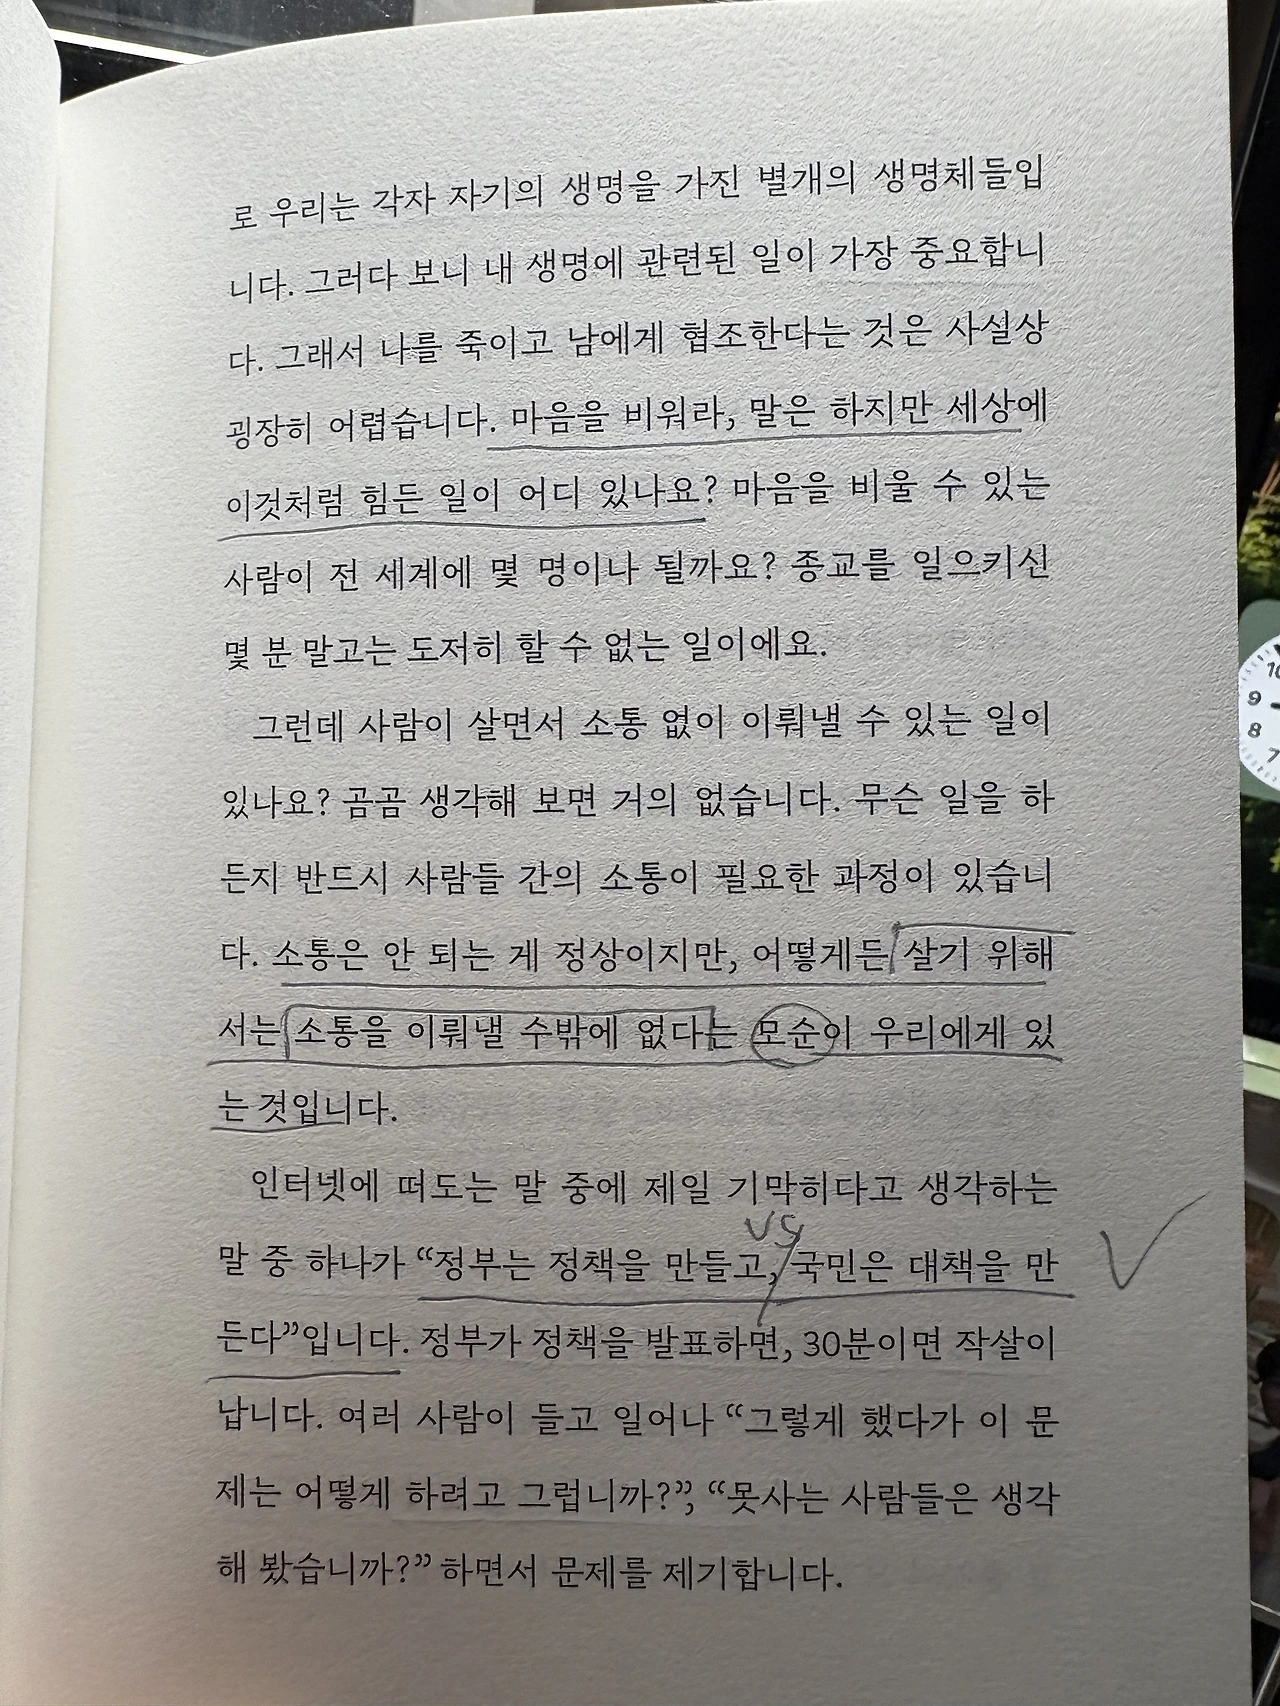 로 우리는 각자 자기의 생명을 가진 별개의 생명체들입
니다. 그러다 보니 내 생명에 관련된 일이 가장 중요합니
다. 그래서 나를 죽이고 남에게 협조한다는 것은 사실상
굉장히 어렵습니다. 마음을 비워라, 말은 하지만 세상에
이것처럼 힘든 일이 어디 있나요? 마음을 비울 수 있는
사람이 전 세계에 몇 명이나 될까요? 종교를 일으키신
몇 분 말고는 도저히 할 수 없는 일이에요.
그런데 사람이 살면서 소통 없이 이뤄낼 수 있는 일이
있나요? 곰곰 생각해 보면 거의 없습니다. 무슨 일을 하
든지 반드시 사람들 간의 소통이 필요한 과정이 있습니
다. 소통은 안 되는 게 정상이지만, 어떻게든 살기 위해
서는 소통을 이뤄낼 수밖에 없다는 모순이 우리에게 있
는 것입니다.
인터넷에 떠도는 말 중에 제일 기막히다고 생각하는
vs
말 중 하나가 “정부는 정책을 만들고, 국민은 대책을 만
든다”입니다. 정부가 정책을 발표하면, 30분이면 작살이
납니다. 여러 사람이 들고 일어나 “그렇게 했다가 이 문
제는 어떻게 하려고 그럽니까?”, “못사는 사람들은 생각
해 봤습니까?” 하면서 문제를 제기합니다.
10
9
8
7